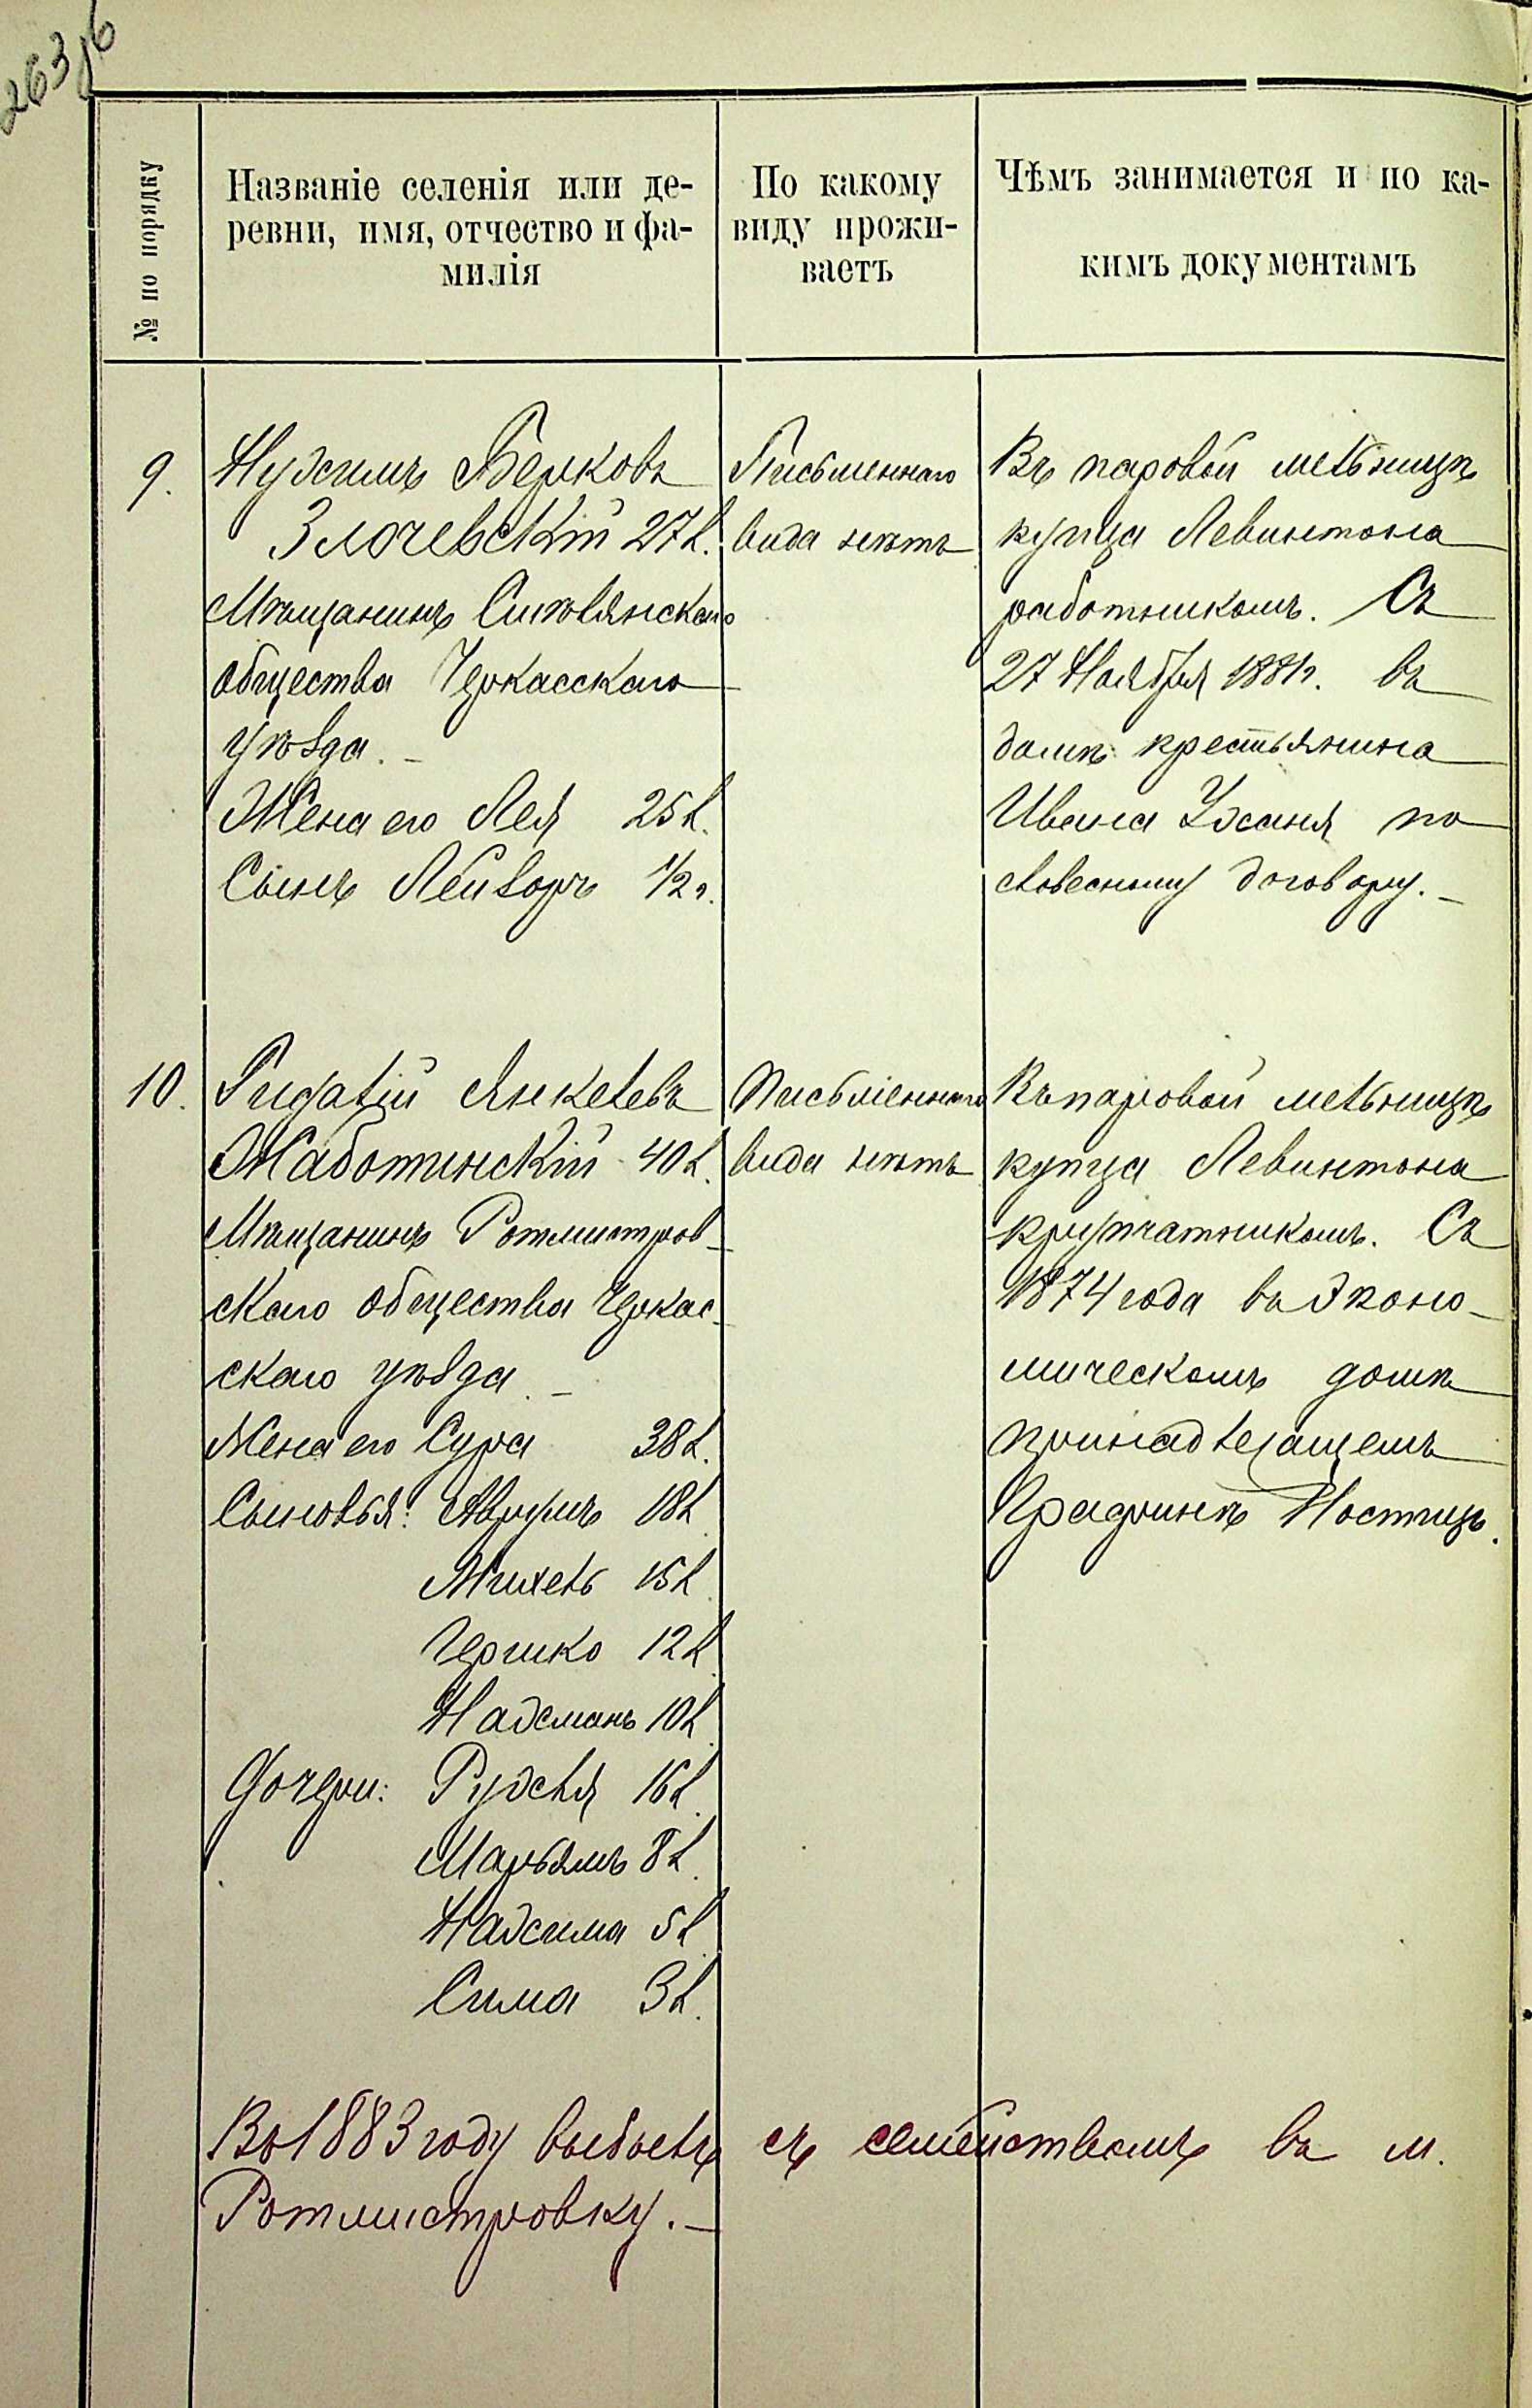 263 об
№ по порядку
Названіе селенія или де-
ревни, имя, отчество и фа-
милія
По какому
виду прожи-
ваетъ
Чѣмъ занимается и по ка-
кимъ документамъ
9.
Нухимъ Берковъ
Злочевскій 27 л.
Мѣщанинъ Смѣлянскаго
общества Черкасскаго
уѣзда. –
Жена его Лея 25 л.
Сынъ Лейзоръ 1/2 г.
Письменнаго
вида нѣтъ
Въ паровой мельницѣ
купца Левинтона
работникомъ. Съ
27 Ноября 1881 г. въ
домѣ крестьянина
Ивана по
словесному договору. –
10.
Янкелевъ
Жаботинскій 40 л.
Мѣщанинъ Ротмистров-
скаго общества Черкас-
скаго уѣзда. –
Жена его Сура 38 л.
Сыновья: Аврумъ 18 л.
Михель 15 л.
Гершко 12 л.
Нахманъ 10 л.
Дочери: Рухля 16 л.
Марьямъ 8 л.
Нахима 5 л.
Сима 3 л.
Письменнаго
вида нѣтъ
Въ паровой мельницѣ
купца Левинтона
крупчатникомъ. Съ
1874 года въ Эконо-
мическомъ домѣ
принадлежащемъ
Графинѣ Ностицъ.
Въ 1883 году выбылъ съ семействомъ въ м.
Ротмистровку. –